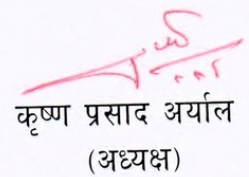 कृष्ण प्रसाद अर्याल
(अध्यक्ष)